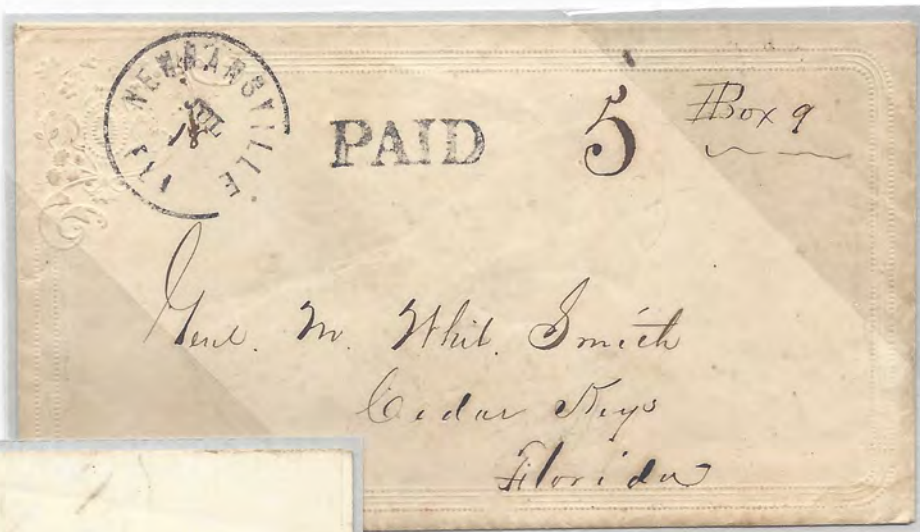 NEWNANSVILLE
FLA
JUL
18
PAID
5
Box 9
Genl. M. Whit. Smith
Cedar Keys
Florida